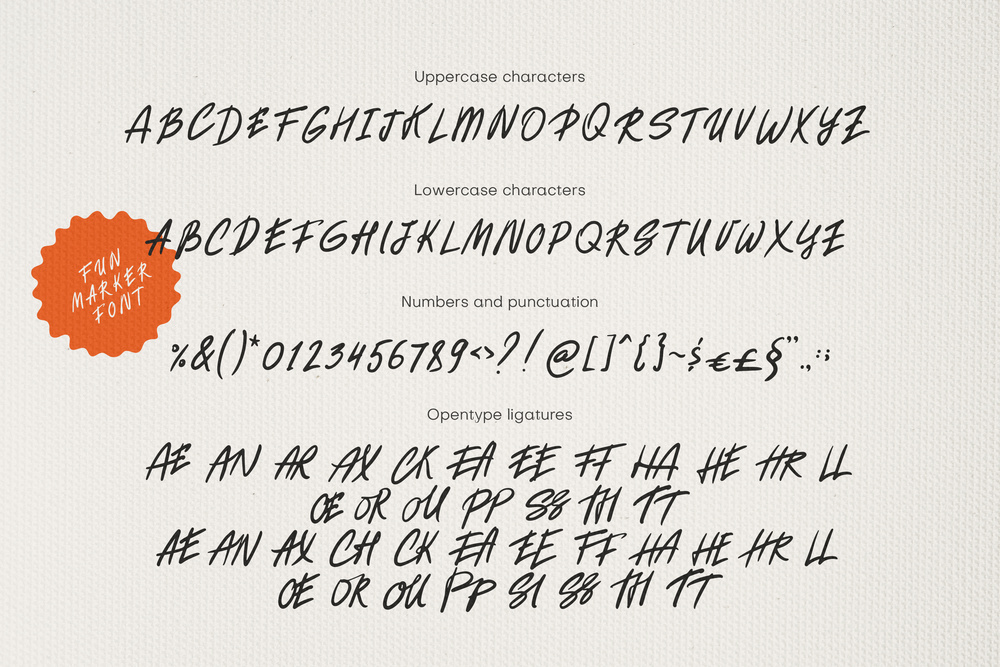 Uppercase characters
ABCDEFGHIJKLMNOPQRSTUVWXYZ
Lowercase characters
ABCDEFGHIJKLMNOPQRSTUVWXYZ
FUN
MARKER
FONT
Numbers and punctuation
%&()*0123456789<>?![@[]^{}~$€£§”.,:;
Opentype ligatures
AE AN AR AX CK EA EE FF HA HE HR LL
OE OR OU PP SS TH TT
AE AN AX CH CK EA EE FF HA HE HR LL
OE OR OU PP SI SS TH TT